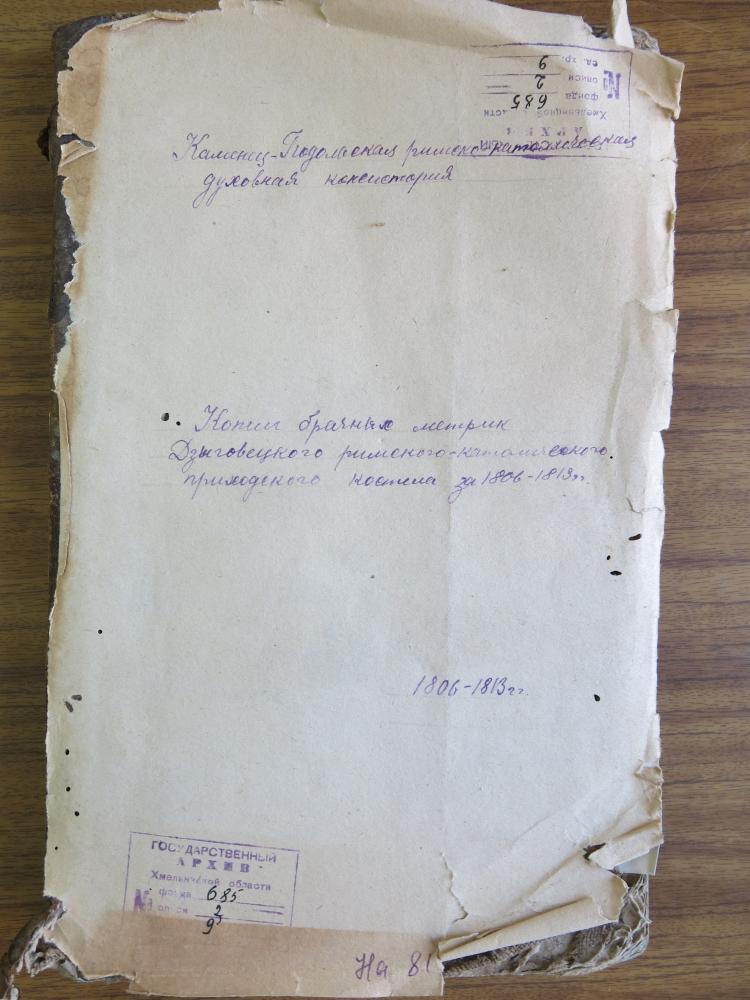 №
фонда 685
описи 2
ед. хр. 9
Хмельницкой области
АРХИВ
Каменец-Подольская римско-католическая
духовная консистория
Копии брачных метрик
Дзыговецкого римского-католического
приходского костела за 1806-1813гг.
1806-1813гг.
ГОСУДАРСТВЕННЫЙ
АРХИВ
Хмельницкой области
№ фонда 685
описи 2
9
На 81